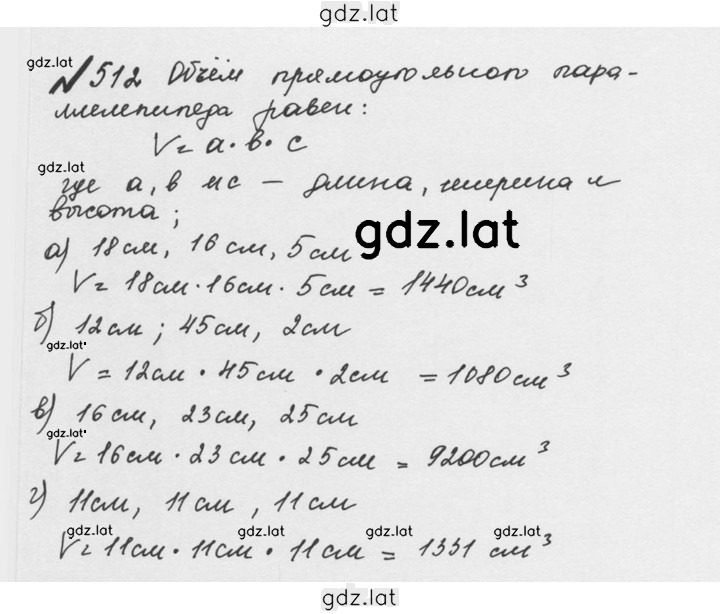 gdz.lat
gdz.lat
№512 Объём прямоугольного пара-
ллелепипеда равен:
V = a · в · с
gdz.lat
где а, в и с – длина, ширина и
высота;
gdz.lat
а) 18см, 16см, 5см
V = 18см · 16см · 5см = 1440см³
б) 12см; 45см, 2см
gdz.lat
V = 12см · 45см · 2см = 1080см³
в) 16см, 23см, 25см
gdz.lat
V = 16см · 23см · 25см = 9200см³
г) 11см, 11см, 11см
gdz.lat gdz.lat gdz.lat gdz.lat
V = 11см · 11см · 11см = 1331 см³
gdz.lat